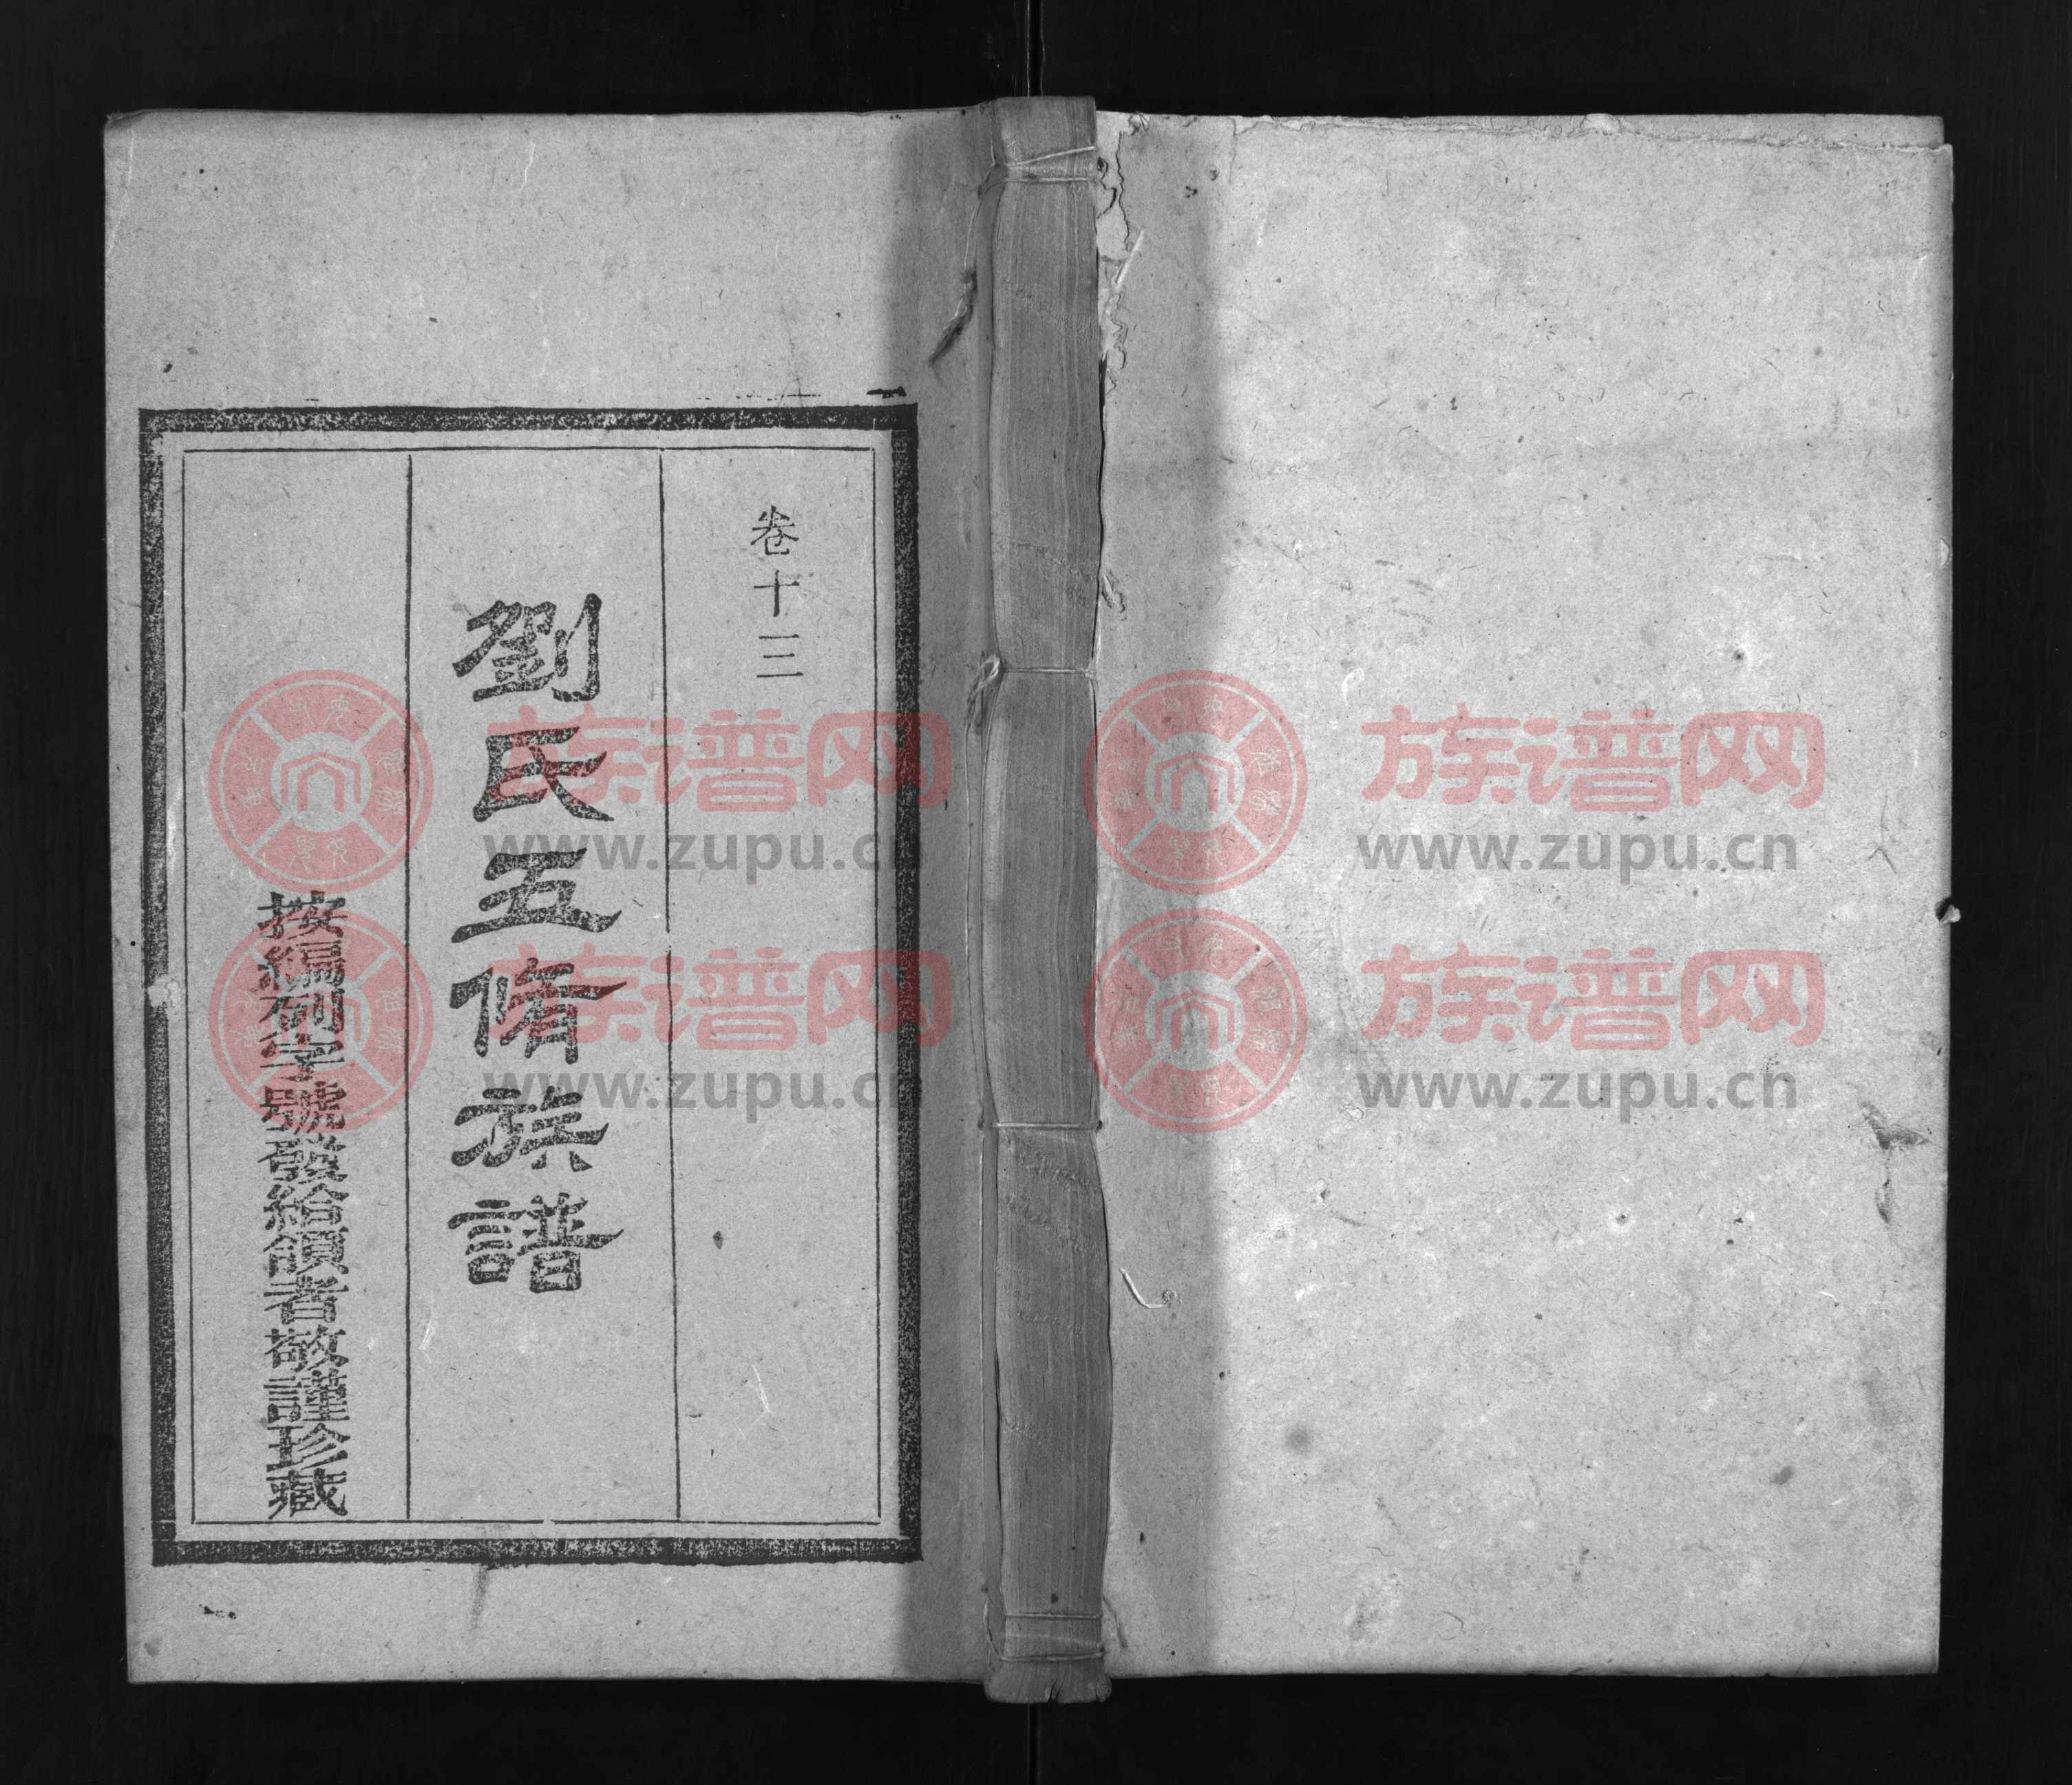 卷十三
劉氏五脩族譜
按編列字號散給領者敬謹珍藏
族谱网
www.zupu.cn
族谱网
www.zupu.cn
族谱网
www.zupu.cn
族谱网
www.zupu.cn